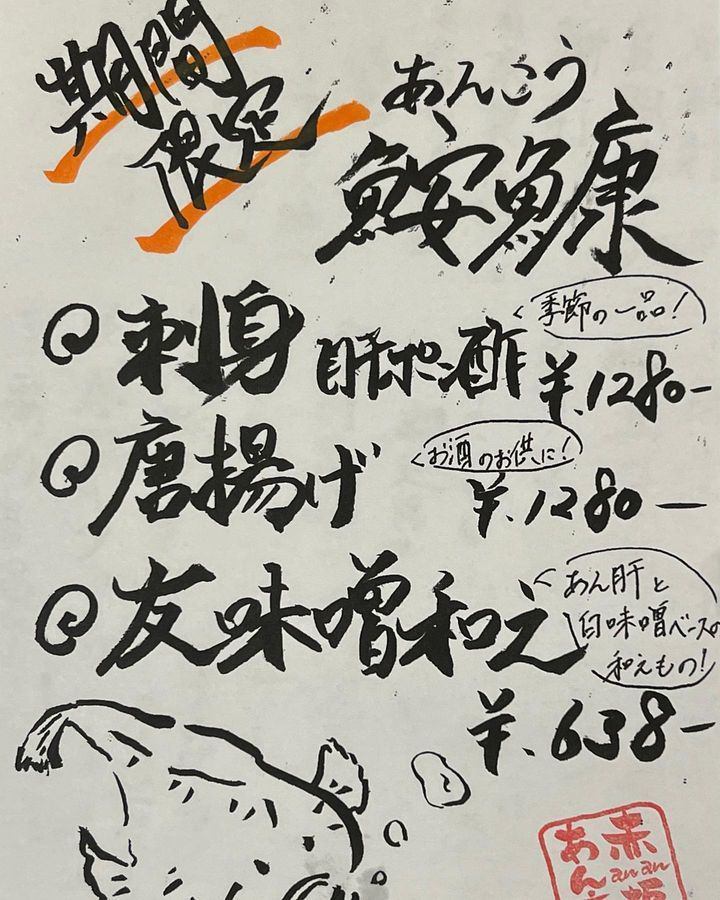 期間
限定
あんこう
鮟鱇
刺身 肝ポン酢
季節の一品!
¥.1280-
唐揚げ
お酒のお供に!
¥.1280-
友味噌和え
あん肝と
白味噌ベースの
和えもの!
¥.638-
赤
あん
anan